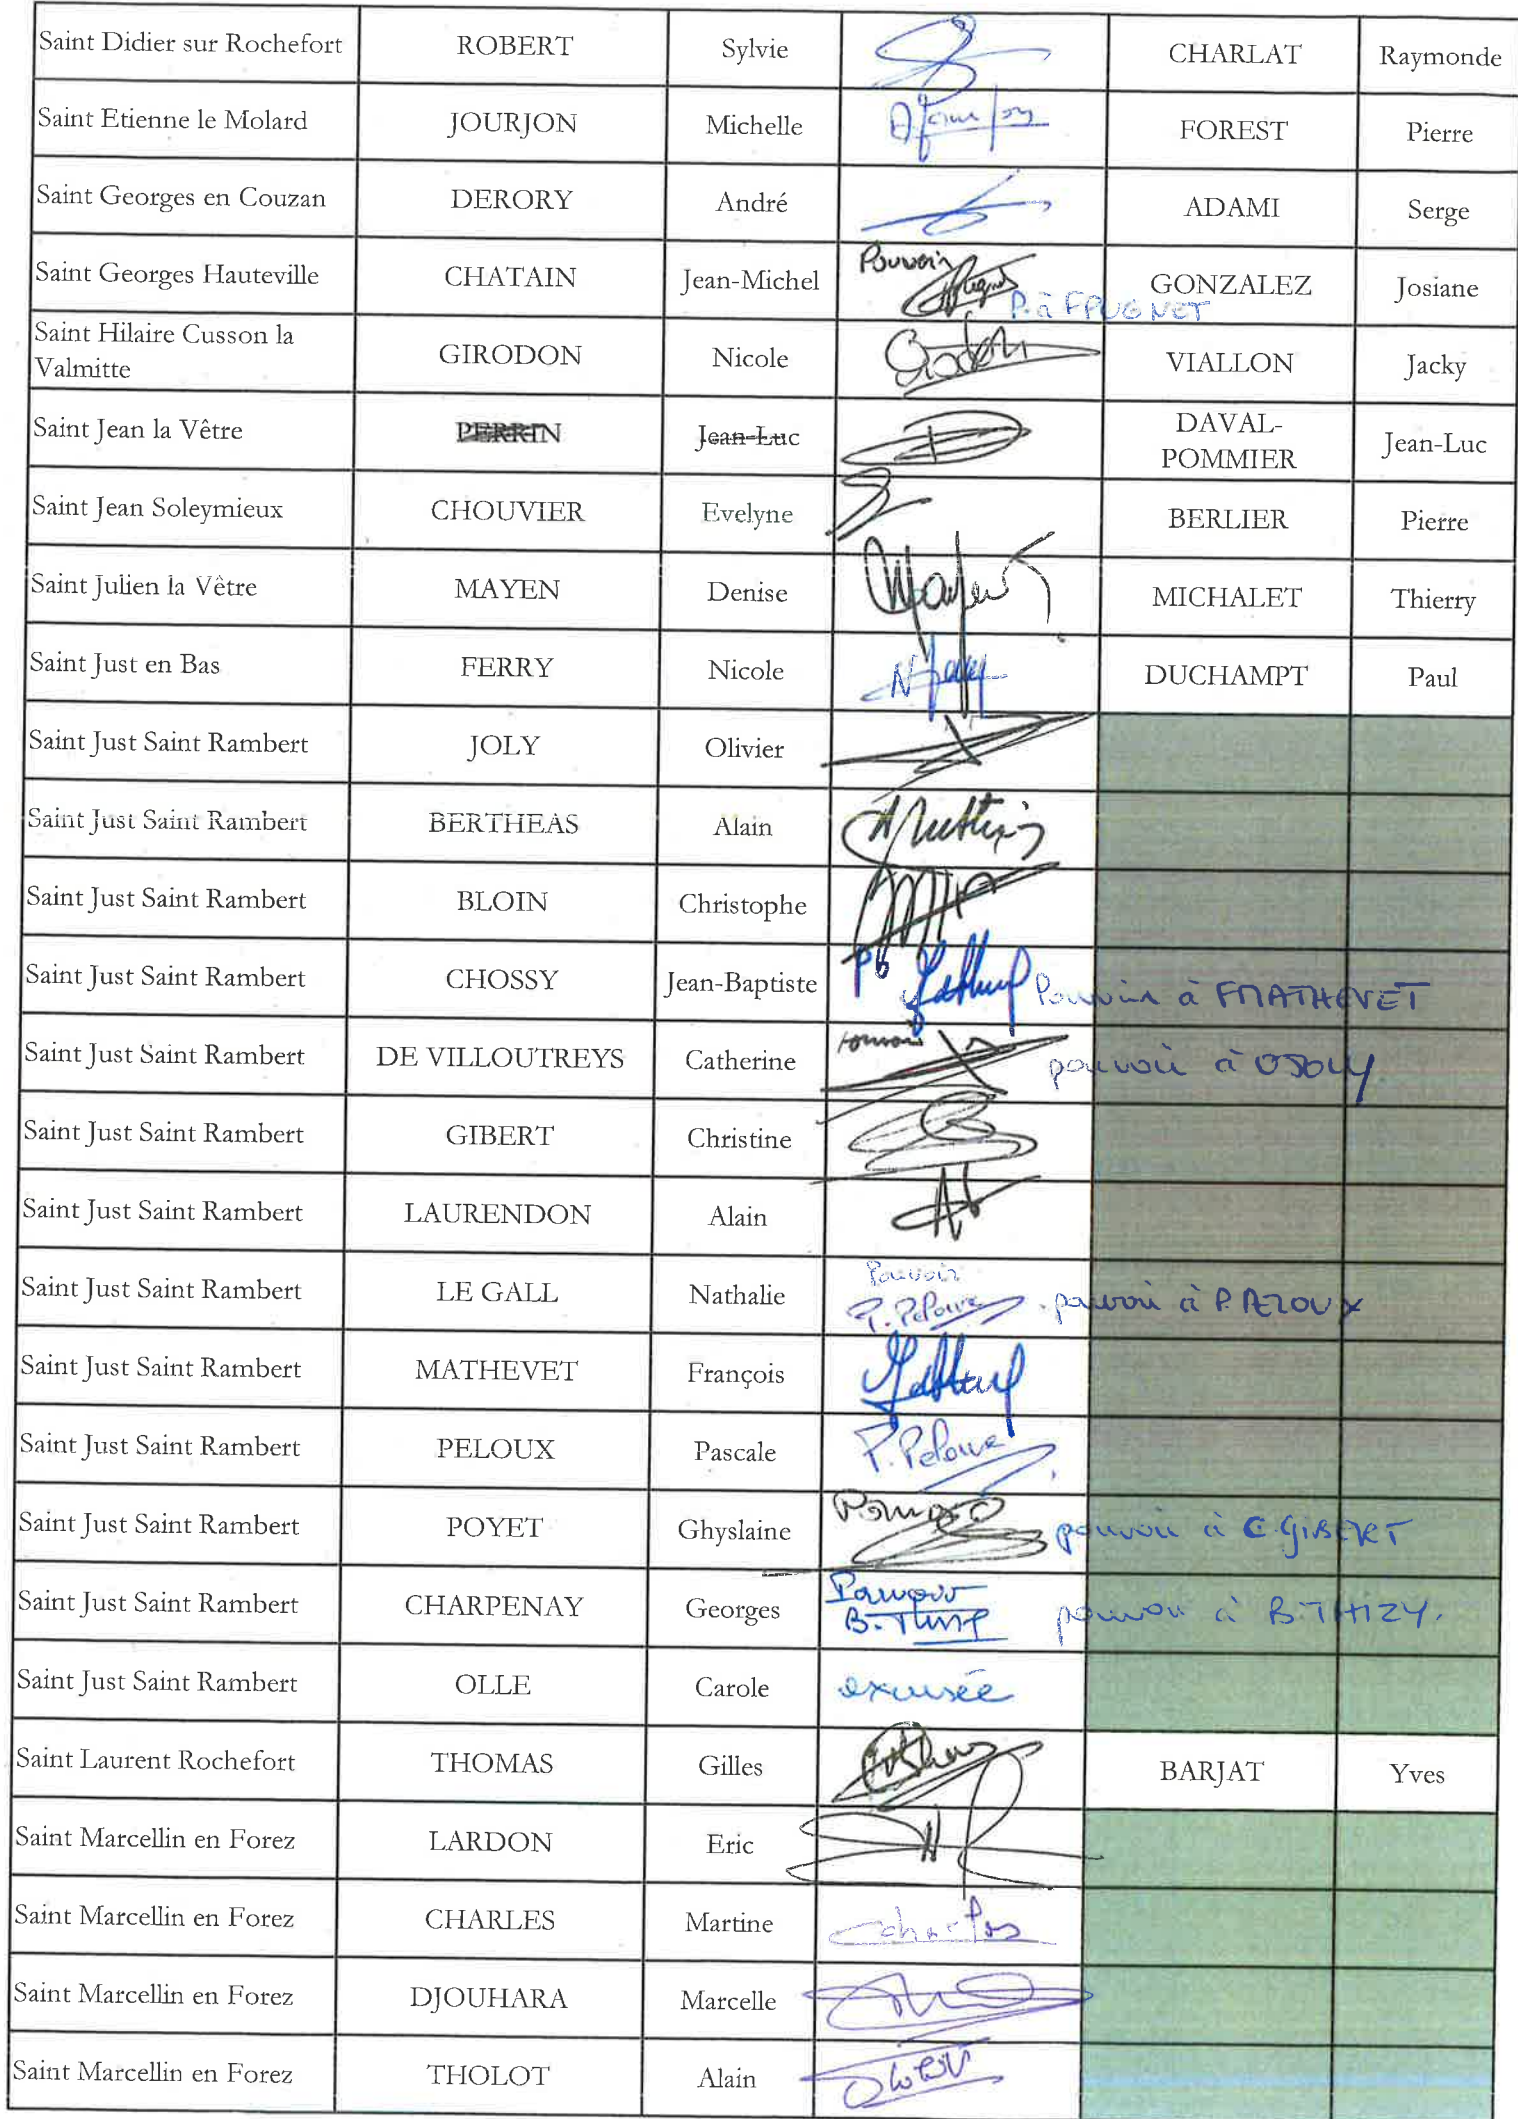 Saint Didier sur Rochefort ROBERT Sylvie CHARLAT Raymonde
Saint Etienne le Molard JOURJON Michelle FOREST Pierre
Saint Georges en Couzan DERORY André ADAMI Serge
Saint Georges Hauteville CHATAIN Jean-Michel Pouvoir P. à F PUGNET GONZALEZ Josiane
Saint Hilaire Cusson la
Valmitte GIRODON Nicole Girodon VIALLON Jacky
Saint Jean la Vêtre PERRIN Jean-Luc DAVAL-
POMMIER Jean-Luc
Saint Jean Soleymieux CHOUVIER Evelyne BERLIER Pierre
Saint Julien la Vêtre MAYEN Denise Mayen MICHALET Thierry
Saint Just en Bas FERRY Nicole DUCHAMPT Paul
Saint Just Saint Rambert JOLY Olivier
Saint Just Saint Rambert BERTHEAS Alain
Saint Just Saint Rambert BLOIN Christophe
Saint Just Saint Rambert CHOSSY Jean-Baptiste Pouvoir à F MATHEVET
Saint Just Saint Rambert DE VILLOUTREYS Catherine Pouvoir pouvoir à O JOLY
Saint Just Saint Rambert GIBERT Christine
Saint Just Saint Rambert LAURENDON Alain
Saint Just Saint Rambert LE GALL Nathalie Pouvoir P. Peloux pouvoir à P. PELOUX
Saint Just Saint Rambert MATHEVET François
Saint Just Saint Rambert PELOUX Pascale P. Peloux
Saint Just Saint Rambert POYET Ghyslaine Pouvoir pouvoir à C. GIBERT
Saint Just Saint Rambert CHARPENAY Georges Pouvoir B. Thizy pouvoir à B. THIZY.
Saint Just Saint Rambert OLLE Carole excusée
Saint Laurent Rochefort THOMAS Gilles BARJAT Yves
Saint Marcellin en Forez LARDON Eric
Saint Marcellin en Forez CHARLES Martine Charles
Saint Marcellin en Forez DJOUHARA Marcelle
Saint Marcellin en Forez THOLOT Alain